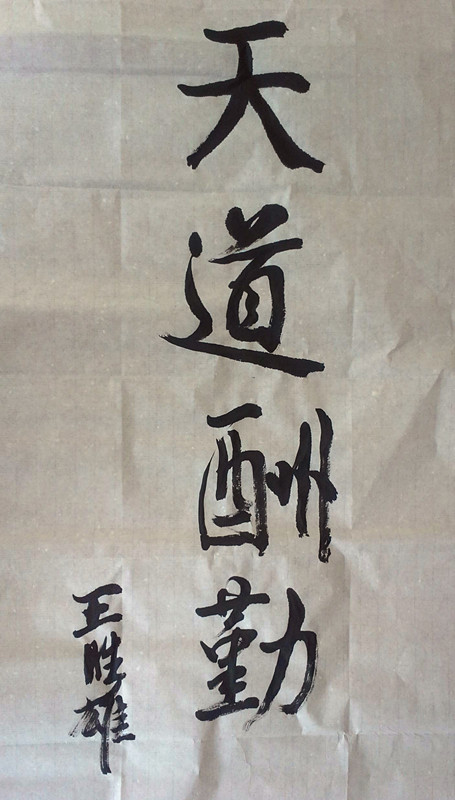 天道酬勤
王胜雄